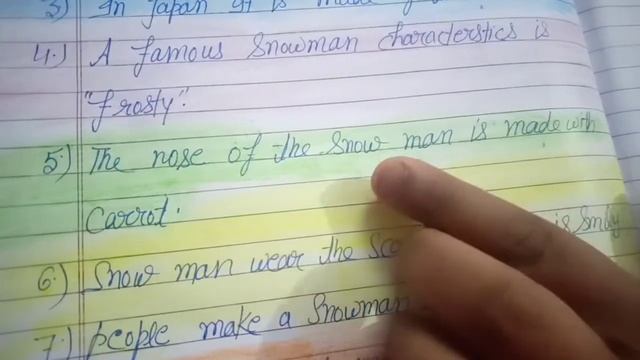 3) In Japan it is made
4.) A famous Snowman characterstics is
"frosty".
5.) The nose of the Snow man is made with
Carrot.
6.) Snow man wear the Sco is
7.) people make a Snowman